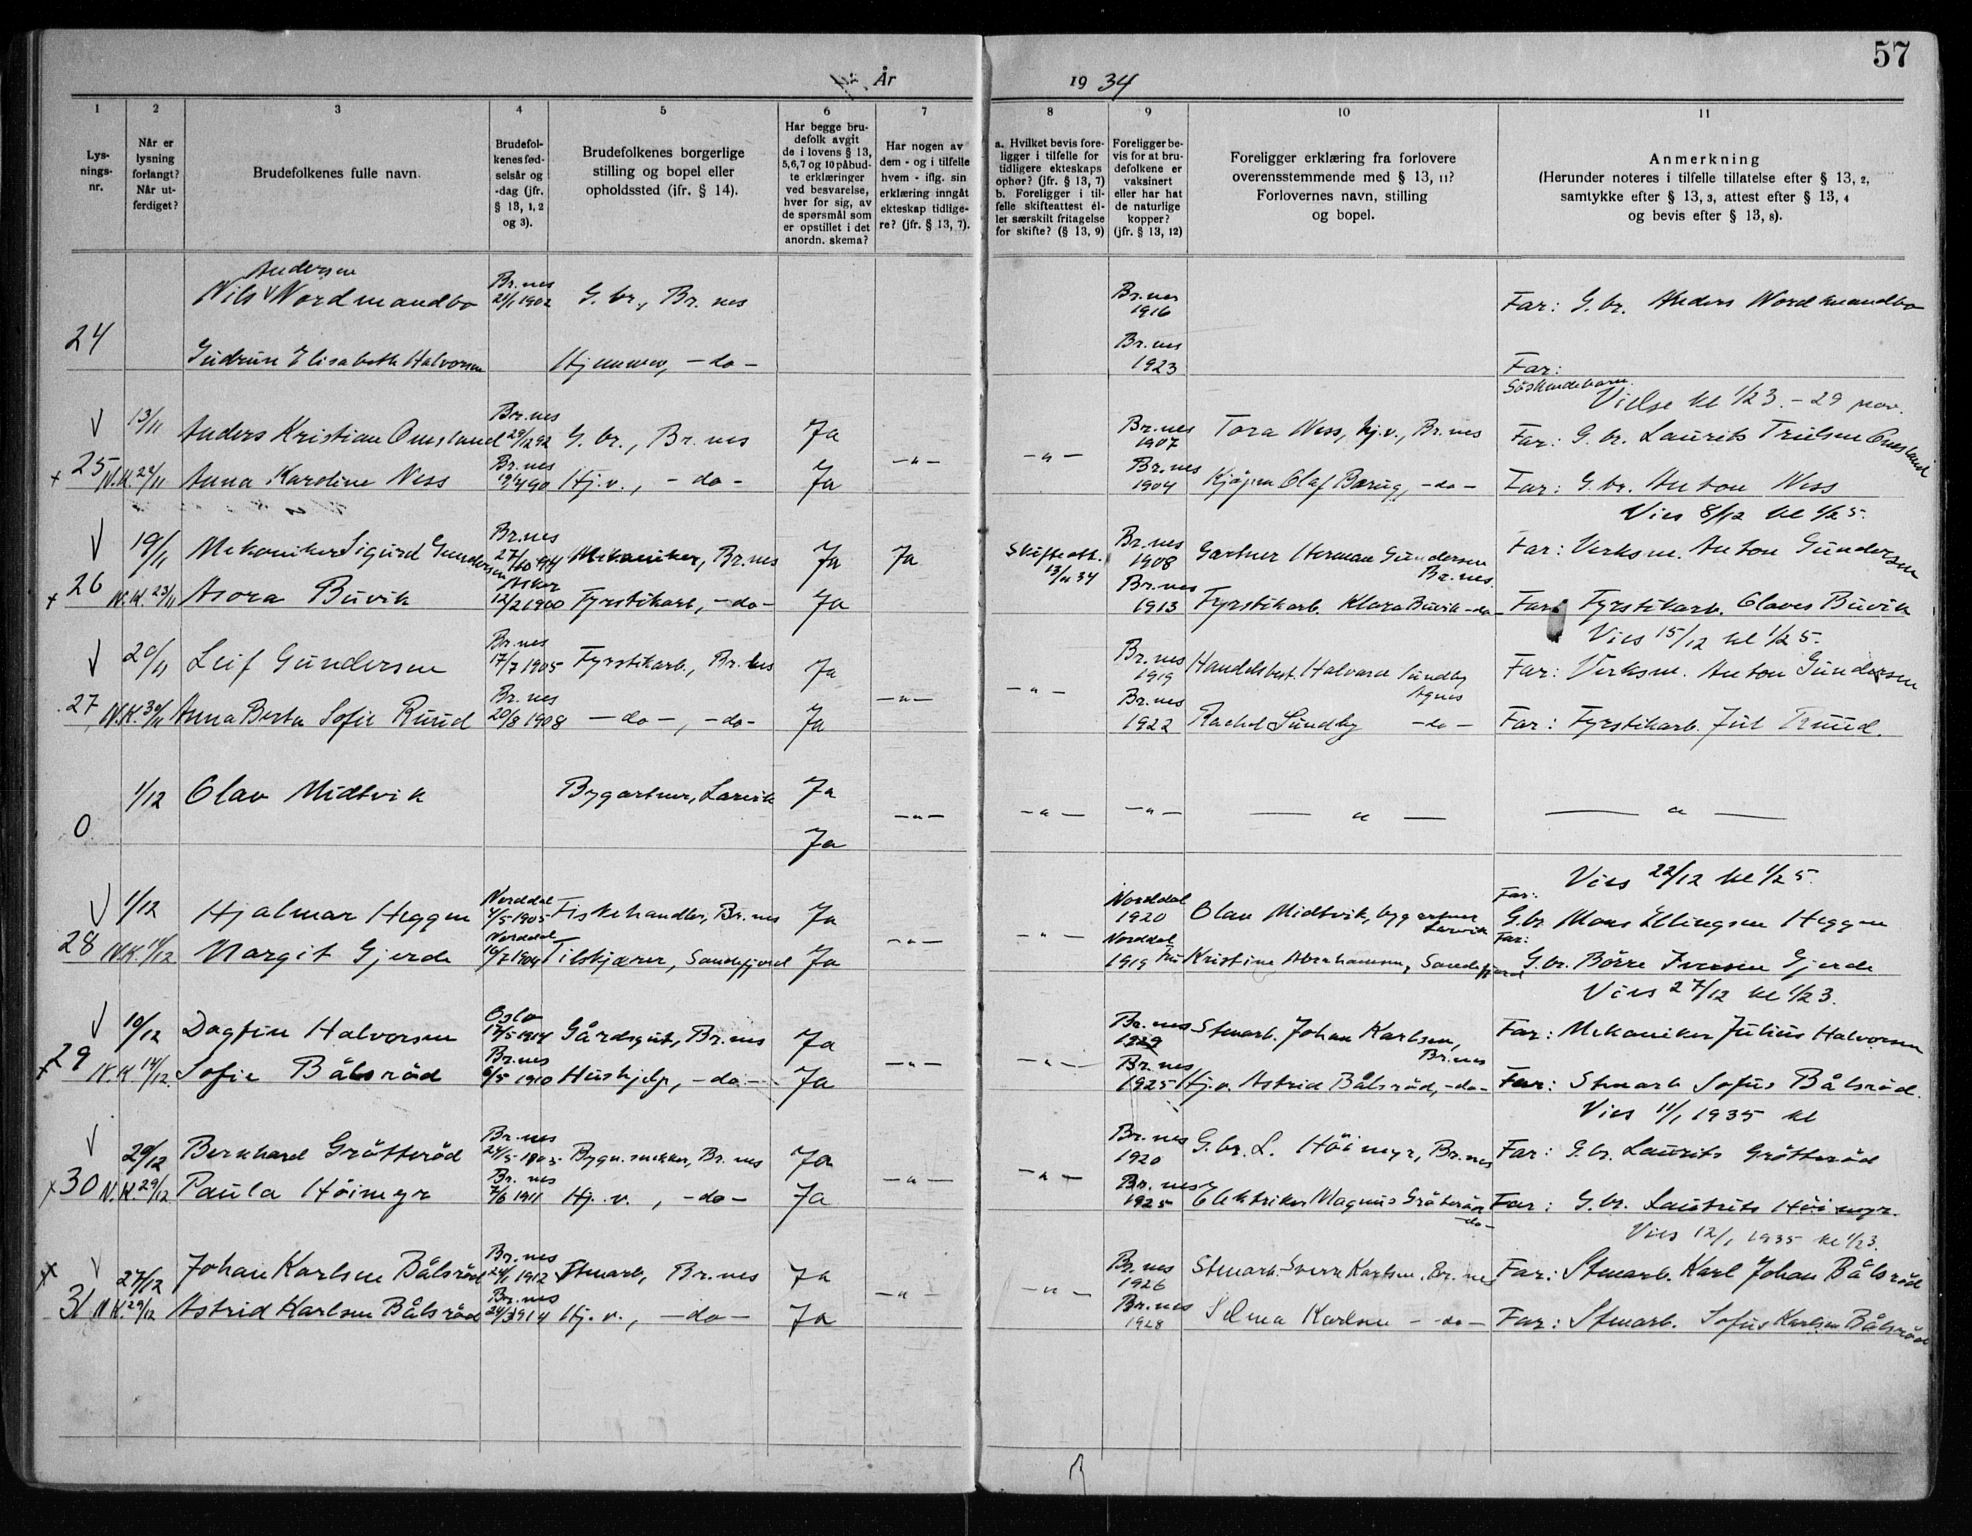 57
År 1934
1 2 3 4 5 6 7 8 9 10 11
Lys-
nings-
nr.
Når er
lysning
forlangt?
Når ut-
ferdiget?
Brudefolkenes fulle navn.
Brudefol-
kenes fød-
selsår og
-dag (jfr.
§ 13, 1, 2
og 3).
Brudefolkenes borgerlige
stilling og bopel eller
opholdssted (jfr. § 14).
Har begge bru-
defolk avgit
de i lovens § 13,
5,6,7 og 10 påbud-
te erklæringer
ved besvarelse,
hver for sig, av
de spørsmål som
er opstillet i det
anordn. skema?
Har nogen av
dem - og i tilfelle
hvem - iflg. sin
erklæring inngått
ekteskap tidlige-
re? (jfr. § 13, 7).
a. Hvilket bevis fore-
ligger i tilfelle for
tidligere ekteskaps
ophør? (jfr. § 13, 7)
b. Foreligger i til-
felle skifteattest el-
ler særskilt fritagelse
for skifte? (§ 13, 9)
Foreligger be-
vis for at bru-
defolkene er
vaksinert
eller har hat
de naturlige
kopper?
(jfr. § 13, 12)
Foreligger erklæring fra forlovere
overensstemmende med § 13, 11?
Forlovernes navn, stilling
og bopel.
Anmerkning
(Herunder noteres i tilfelle tillatelse efter § 13, 2,
samtykke efter § 13, 3, attest efter § 13, 4
og bevis efter § 13, 8).
24
Andersen
Nils Nordmandbo Br.nes 21/1 1902 G.br., Br.nes Br.nes 1916 Far: G.br. Anders Nordmandbo
Gudrun Elisabeth Halvorsen Hjemmev, -do- Br.nes 1923 Far:
Söskendebarn.
Vielse kl 1/2 3. - 29 nov.
13/11 Anders Kristian Omsland Br.nes 29/12 92 G.br., Br.nes Ja Br.nes 1907 Tora Ness, hj.v., Br.nes Far: G.br. Laurits Trulsen Omsland
25 N.K. 24/11 Anna Karoline Ness Br.nes 19/4 90 Hj.v., -do- Ja -"- -"- Br.nes 1904 Kjøpm Olaf Borug, -do- Far: G.br. Anton Ness
Vies 8/12 kl 1/2 5.
19/11 Mekaniker Sigurd Gundersen Br.nes 27/10 94 Mekaniker, Br.nes Ja Ja Skifteatt. 13/11 34 Br.nes 1908 Gartner Herman Gundersen Br.nes Far: Verksm. Anton Gundersen
26 N.K. 23/11 Asora Buvik Asker 12/2 1900 Fyrstikarb, -do- Ja Br.nes 1913 Fyrstikarb. Klara Buvik -do- Far: Fyrstikarb. Olaves Buvik
Vies 15/12 kl 1/2 5.
20/11 Leif Gundersen Br.nes 17/7 1905 Fyrstikarb., Br.nes Ja Br.nes 1919 Handelsbest. Halvard Sundby Far: Verksm. Anton Gundersen
27 N.K. 30/11 Anna Berta Sofie Ruud Br.nes 20/8 1908 -do-, -do- Ja -"- -"- Br.nes 1922 Rachel Agnes Sundby -do- Far: Fyrstikarb. Jul Ruud.
0 1/12 Olav Midtvik Bygartner, Larvik Ja -"- -"- -"- -"- -"-
Ja
Vies 22/12 kl 1/2 5.
1/12 Hjalmar Heggen Norddal 4/5 1905 Fiskehandler, Br.nes Ja Norddal 1920 Olav Midtvik, bygartner Larvik Far: G.br. Mons Ellingsen Heggen
28 N.K. 11/12 Margit Gjerde Norddal 16/7 1904 Tilskjærer, Sandefjord Ja -"- -"- Norddal 1919 Fru Kristine Abrahamsen, Sandefjord Far: G.br. Börre Iversen Gjerde
Vies 27/12 kl 1/2 3.
10/12 Dagfin Halvorsen Oslo 17/5 1914 Gårdsgut, Br.nes Ja Br.nes 1929 Stenarb. Johan Karlsen, Br.nes Far: Mekaniker Julius Halvorsen
29 N.K. 14/12. Sofie Bålsröd Br.nes 6/5 1910 Hushjelp, -do- Ja -"- -"- Br.nes 1925 Hj.v. Astrid Bålsröd, -do- Far: Stenarb Sofus Bålsröd.
Vies 11/1 1935 kl
20/12 Bernhard Grötteröd Br.nes 24/5 1905 Bygn.snekker, Br.nes Ja Br.nes 1920 G.br. L. Höimyr, Br.nes Far: G.br. Laurits Grötteröd
30 N.K. 29/12 Paula Höimyr Br.nes 7/6 1911 Hj.v., -do- Ja -"- -"- Br.nes 1925 Elektriker Magnus Gröteröd -do- Far: G.br. Lauritz Höimyr.
Vies 12/1 1935 kl 1/2 3.
27/12 Johan Karlsen Bålsröd Br.nes 24/1 1912 Stenarb, Br.nes Ja Br.nes 1926 Stenarb. Sverre Karlsen, Br.nes Far: Stenarb. Karl Johan Bålsröd
31 N.K. 29/12 Astrid Karlsen Bålsröd Br.nes 24/3 1914 Hj.v., -do- Ja -"- -"- Br.nes 1928 Selma Karlsen -do- Far: Stenarb. Sofus Karlsen Bålsröd